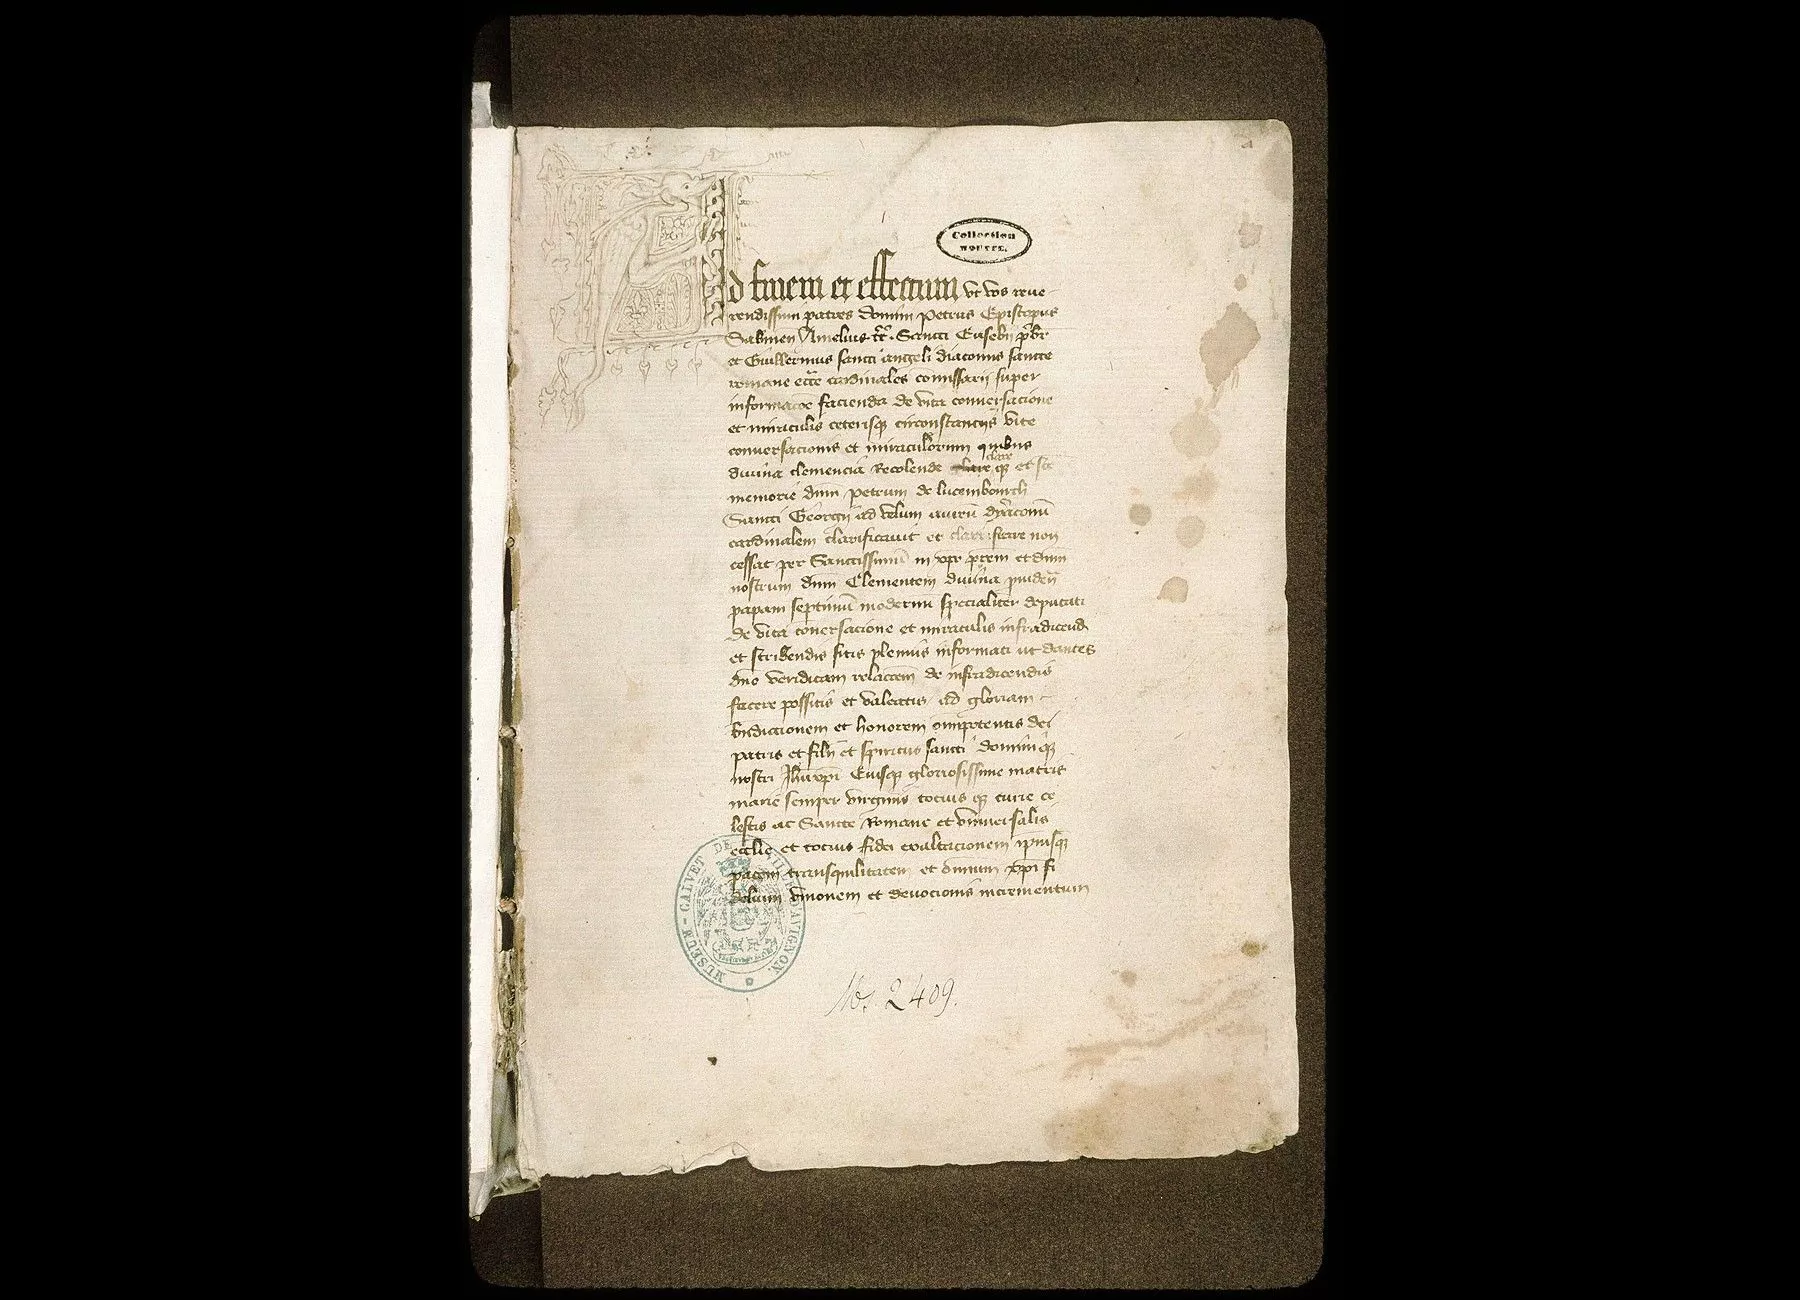 Collection
MOUTTE.
Ad finem et effectum vt vos reue
rendissimi patres domini Petrus Episcopus
Sabinen Amelius tt. Sancti Eusebij prbr
et Guillermus sancti angeli diaconus sancte
romane ecce cardinales comissarij super
facienda de vita conuersacione
et miraculis ceterisq circonstancijs vite
conuersacionis et miraculorum quibus
diuina clemencia Recolende clare q et
memorie dnm petrum de lucembourch
Sancti Georgij ad velum aureu dyaconu
cardinalem clarificauit et clarificare non
cessat per Sanctissimu in xpo prem et dnm
nostrum dnm Clementem diuina
papam septimu modernu specialiter deputati
de vita conersacione et miraculis infradicend
et scribendis sitis plenius informati ut dantes
dno veridicam relacoem de infradicendis
facere possitis et valeatis ad gloriam
bndictionem et honorem omipotentis dei
patris et filij et spiritus sancti dominiq
nostri Jhu xpi Eiusq gloriosissime matris
marie semper virginis tocius q curie ce
lestis ac Sancte Romane et vniuersalis
ecclie et tocius fidei exaltacionem ipsiusq
pacem transquilitatem et omnium xpi fi
delium vnionem et deuocionis incrementum
MUSEUM-CALVET DE LA VILLE D'AVIGNON.
Ms. 2409.